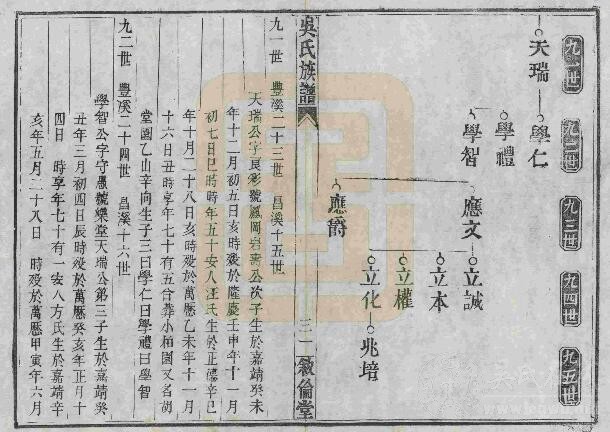 九一世
九二世
九三世
九四世
九五世
天瑞
學仁
學禮
學智
應文
立誠
立本
應爵
立權
立化
兆培
吳氏族譜
三一
敘倫堂
九一世 豐溪二十三世 昌溪十五世
天瑞公字良彩號鳳岡岩壽公次子生於嘉靖癸未
年十二月初五日亥時歿於隆慶壬申年十一月
初七日巳時時年五十安人汪氏生於正德辛巳
年十月二十八日亥時歿於萬歷乙未年十一月
十六日丑時享年七十有五合葬小柏園又名胡
堂園乙山辛向生子三曰學仁曰學禮曰學智
九二世 豐溪二十四世 昌溪十六世
學智公字守愚號樂堂天瑞公第三子生於嘉靖癸
丑年三月初四日辰時歿於萬歷癸亥年正月十
四日 時享年七十有一安人方氏生於嘉靖辛
亥年五月二十八日 時歿於萬歷甲寅年六月